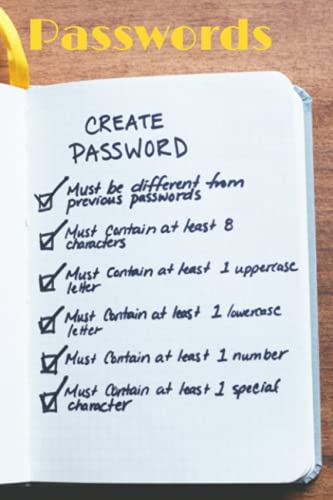 Passwords
CREATE
PASSWORD
Must be different from
previous passwords
Must Contain at least 8
characters
Must Contain at least 1 uppercase
letter
Must Contain at least 1 lowercase
letter
Must Contain at least 1 number
Must Contain at least 1 special
character